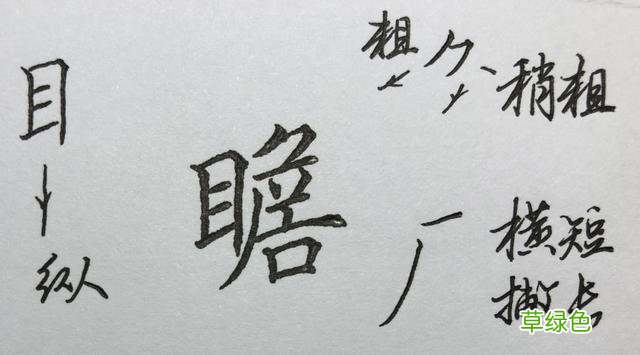 目
纵
瞻
粗
⺈
稍粗
厂
横短
撇长
草绿色